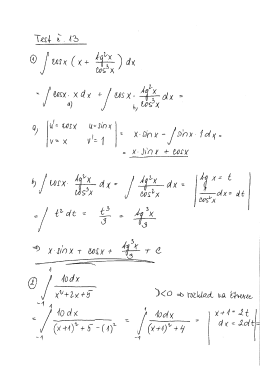 Test č. 13
① ∫ cosx ( x + tg²x / cos³x ) dx
= ∫ cosx · x dx + ∫ cosx · tg²x / cos³x dx =
a) b)
a) | u' = cosx u = sinx | v = x v' = 1 | = x·sinx − ∫ sinx · 1 dx =
= x·sinx + cosx
b) ∫ cosx · tg²x / cos³x dx = ∫ tg²x / cos²x dx = | tg x = t | dx / cos²x = dt |
= ∫ t² dt = t³/3 = tg³x / 3
⇒ x·sinx + cosx + tg³x / 3 + C
② ∫ 10dx / x²+2x+5
-1
D<0 ⇒ rozklad na štvorec
= ∫ 10dx / (x+1)² + 5 − (1)² = ∫ 10dx / (x+1)² + 4 = | x+1 = 2t | dx = 2dt | =
-1 -1